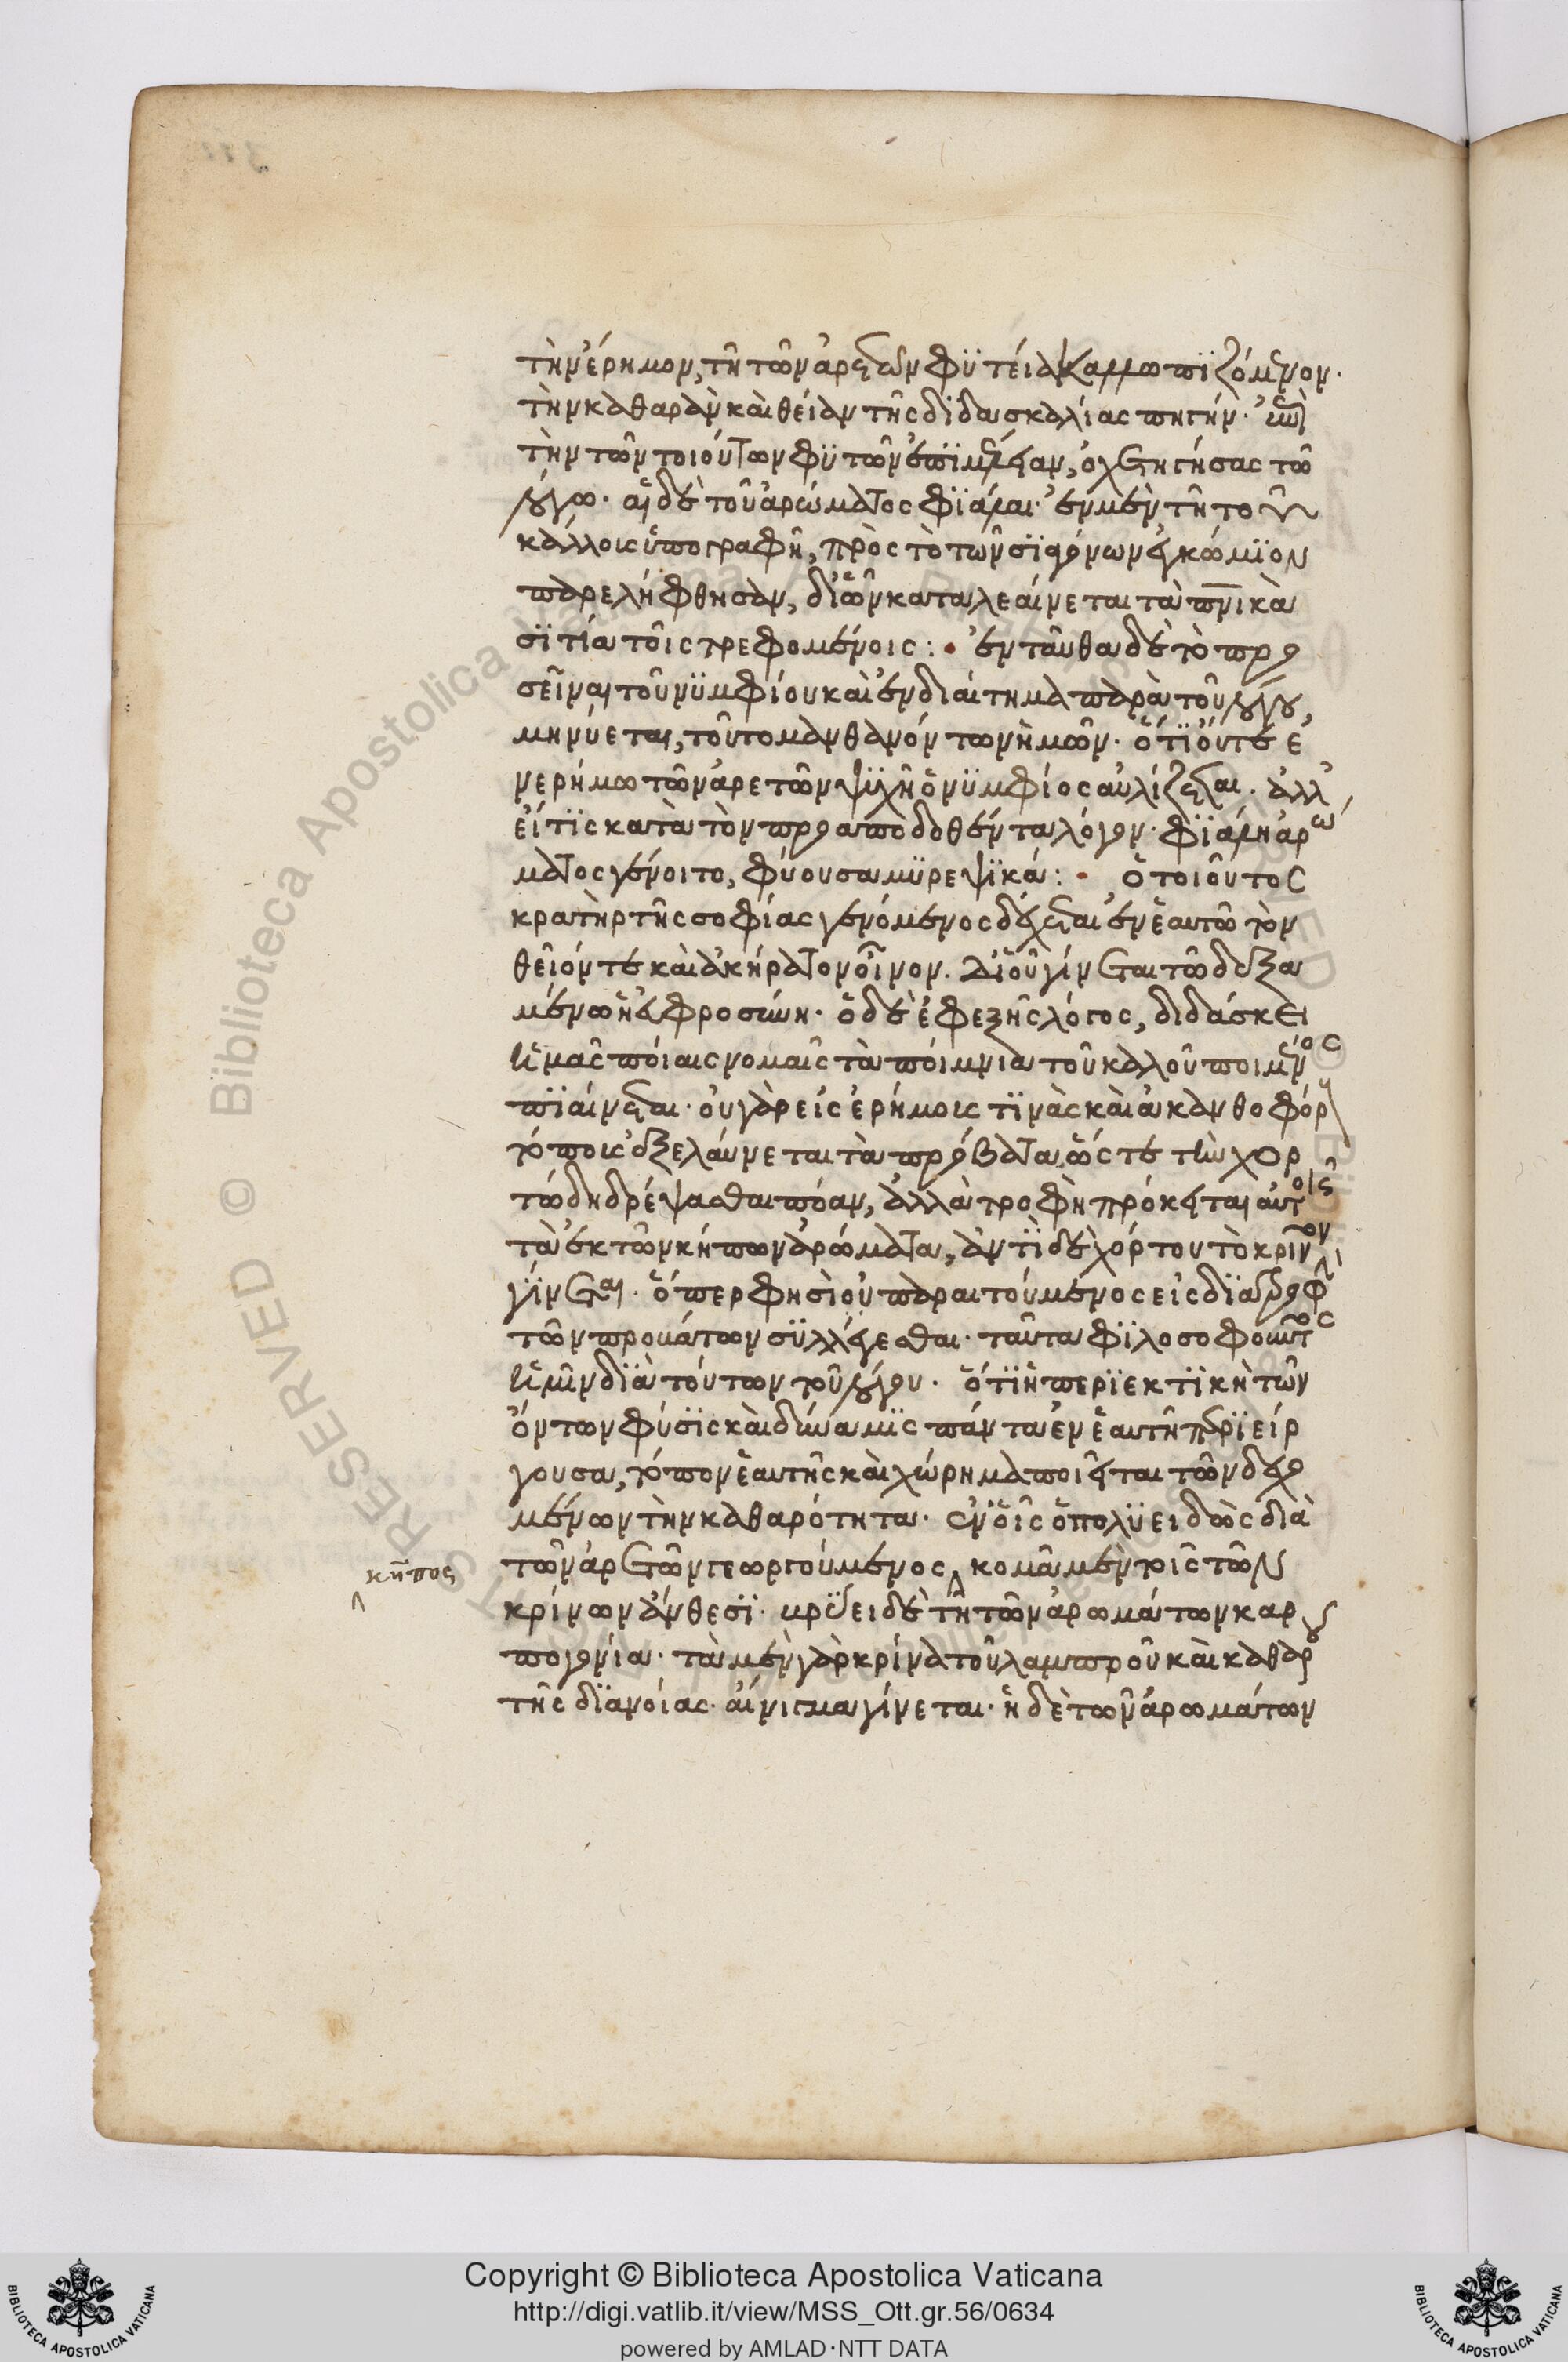 τὴν ἔρημον, τῆ τῶν ἀρετῶν φϋτεία καλλωπϊζόμενον.
τὴν καθαρὰν καὶ θείαν τῆς διδασκαλίας πηγήν. ἐπὶ
τὴν τῶν τοιούτων φϋτῶν ἐπϊμέλειαν, ὀχετηγήσας τῶ
λόγω. αἱ δὲ τοῦ ἀρώματος φϊάλαι. ἐν μὲν τῆ τοῦ
κάλλους ὑπογραφῆ, πρὸς τὸ τῶν σϊαγόνων ἐγκώμϊον
παρελήφθησαν, δι ὧν καταλεαίνεται τὰ πνικὰ
σϊτία τοῖς τρεφομένοις: ἐνταῦθα δὲ τὸ προ
σεῖναι τοῦ νϋμφίου καὶ ἐνδιαίτημα παρὰ τοῦ λόγου,
μηνύεται, τοῦτο μανθανόντων ἡμῶν. ὅτϊ οὔτε ἐ
ν ἐρήμω τῶν ἀρετῶν ψϋχῆ ὁ νϋμφίος αὐλίζεται. ἀλλ
εἴ τϊς κατὰ τὸν προαποδοθέντα λόγον. φϊάλη ἀρώ
ματος γένοιτο, φύουσα μϋρεψϊκά: ὁ τοιοῦτος
κρατὴρ τῆς σοφίας γενόμενος δέχεται ἐν ἑαυτῶ τὸν
θεῖόν τε καὶ ἀκήρατον οἶνον. δι οὗ γίνεται τῶ δεξα
μένω ἡ εὐφροσύνη. ὁ δὲ ἐφεξῆς λόγος, διδάσκει
ἡμᾶς ποίαις νομαῖς τὰ ποίμνια τοῦ καλοῦ ποιμένος
πϊαίνεται. οὐ γὰρ εἰς ἐρήμους τϊνὰς καὶ ἀκανθοφόρους
τόπους ἐξελαύνεται τὰ πρόβατα ὥς τε τὴν χορ
τώδη δρέψασθαι πόαν, ἀλλὰ τροφὴ πρόκειται αὐτοῖς
τὰ ἐκ τῶν κήπων ἀρώματα, ἀντϊ δὲ χόρτου τὸ κρίνον
γϊνεται. ὅπερ φησὶ οὐ παραιτούμενος εἰς διατροφὴν
τῶν προβάτων σϋλλέγεσθαι. ταῦτα φϊλοσοφοῦντος
ἡμῖν διὰ τούτων τοῦ λόγου. ὅτϊ ἡ περϊεκτϊκὴ τῶν
ὄντων φύσϊς καὶ δύναμϊς πάντα ἐν ἑαυτῆ περϊείρ
γουσα, τόπον ἑαυτῆς καὶ χώρημα ποιεῖται τῶν δεχο
μένων τὴν καθαρότητα. ἐν οἷς ὁ πολϋειδῶς διὰ
τῶν ἀρετῶν γεωργούμενος κομᾶ μὲν τοῖς τῶν
κῆπος
κρίνων ἄνθεσϊ. βρϋει δὲ τῆ τῶν ἀρωμάτων καρ
πογονία. τὰ μὲν γὰρ κρίνα τοῦ λαμπροῦ καὶ καθαροῦ
τῆς διανοίας. αἴνιγμα γίνεται. ἡ δὲ τῶν ἀρωμάτων
Copyright © Biblioteca Apostolica Vaticana
http://digi.vatlib.it/view/MSS_Ott.gr.56/0634
powered by AMLAD·NTT DATA
BIBLIOTECA APOSTOLICA VATICANA
BIBLIOTECA APOSTOLICA VATICANA